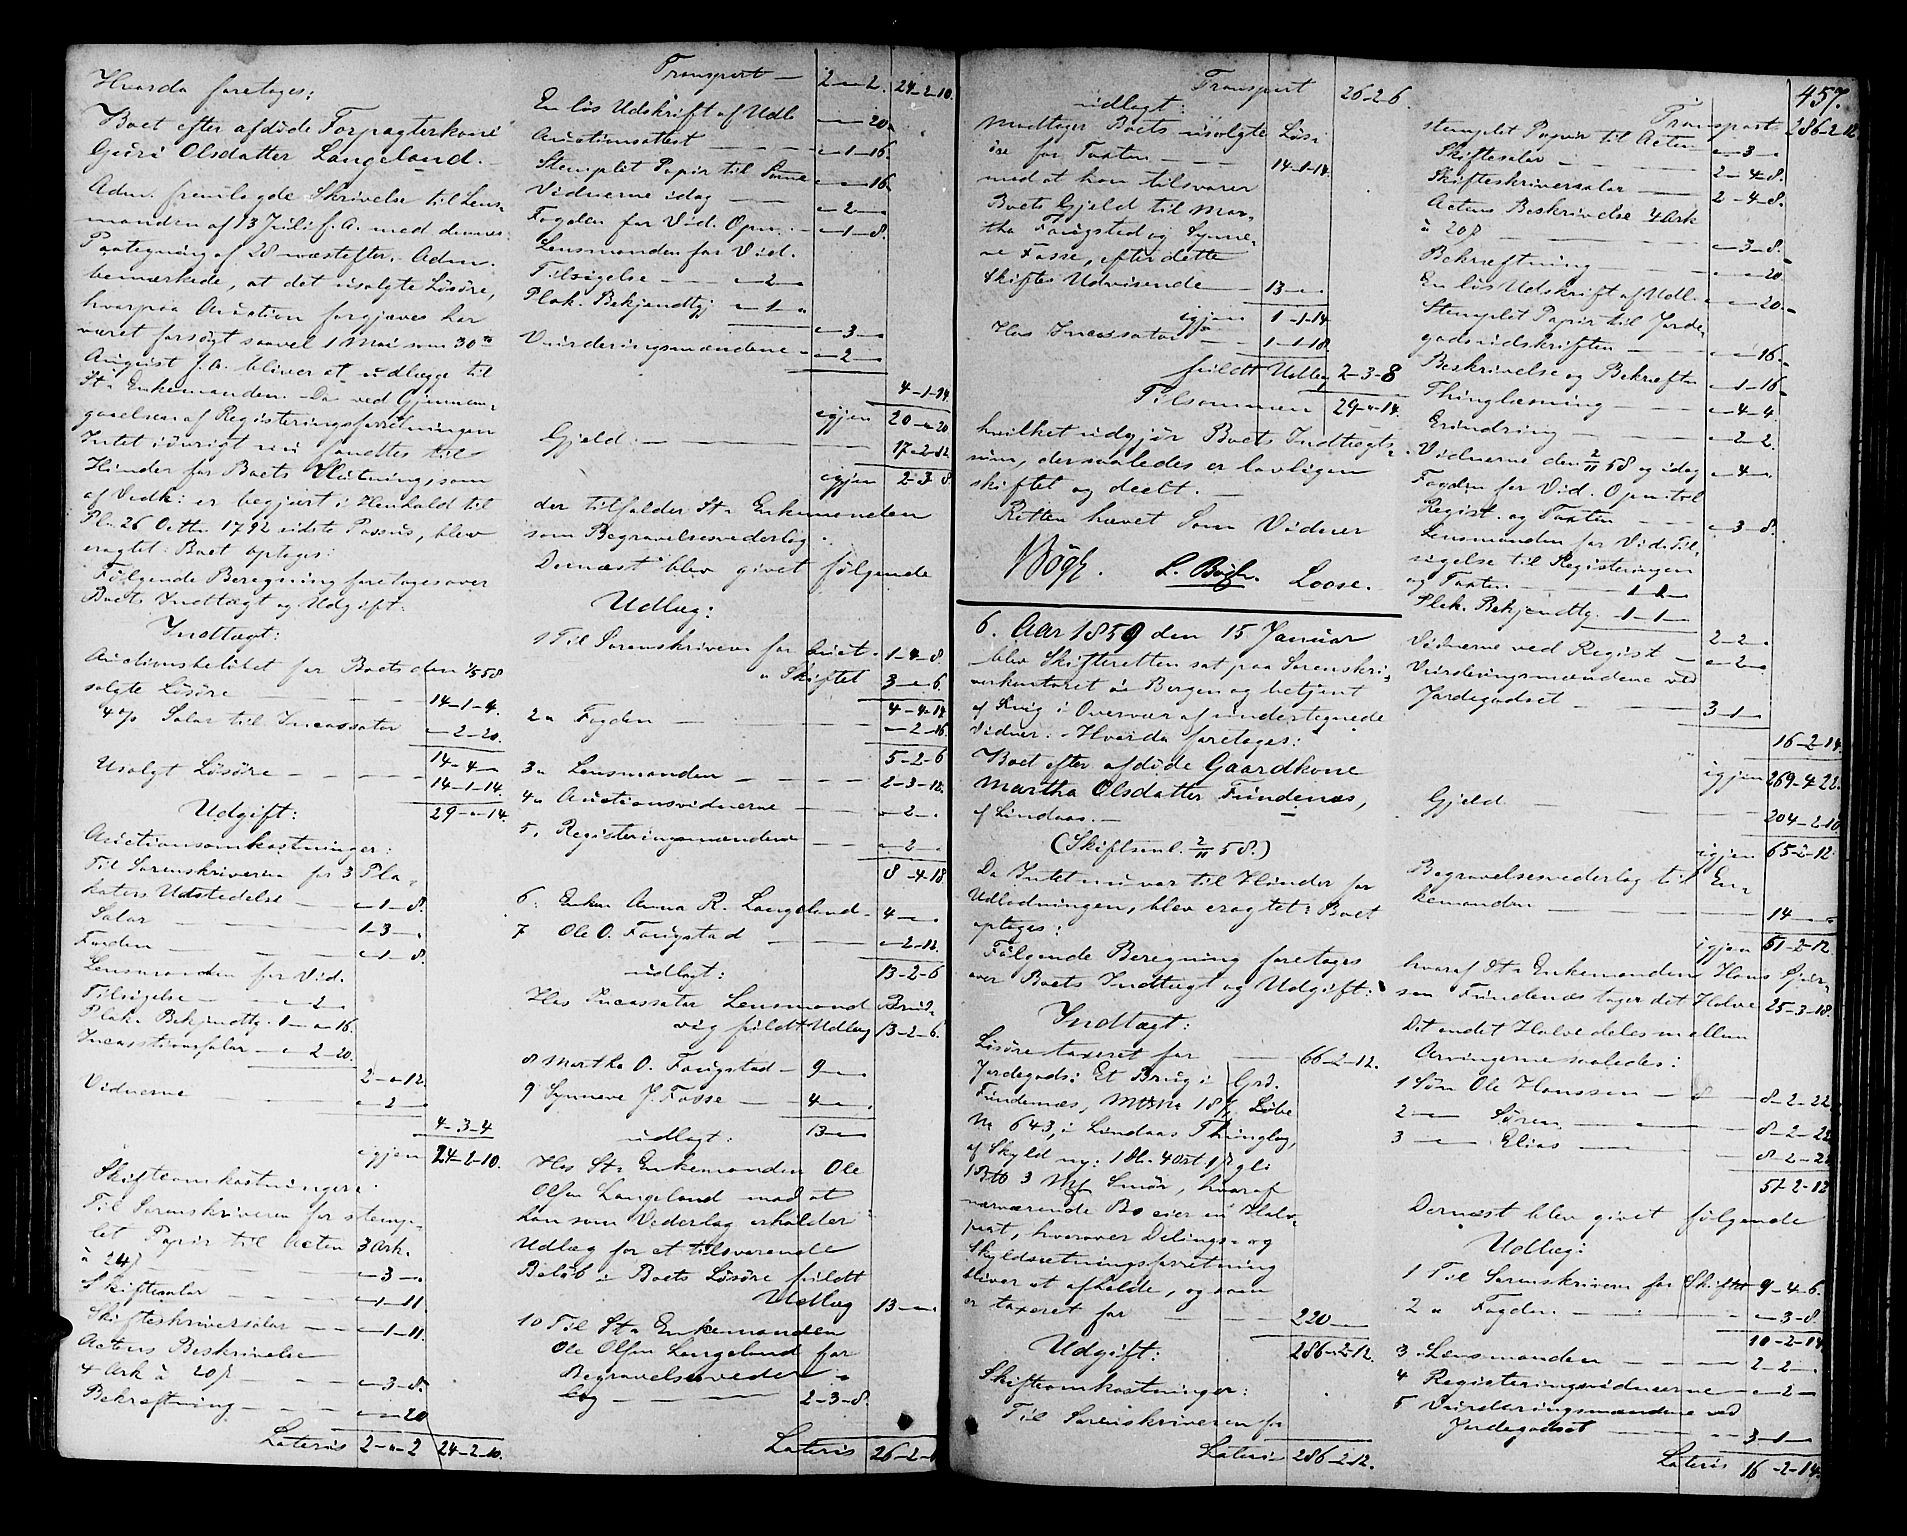 Hvorda foretoges:
Boet efter afdöde Forpagterkone
Guri Olsdatter Langeland.
Adm. fremlagde Skrivelse til Lens-
manden af 13 Juli f. A. med dennes
Paategning af 28 næstefter. Adm.
bemærkede, at det usolgte Lösöre,
hvorpaa Auction forgjæves har
været forsögt saavel 1 Mai som 30te
August f. A. bliver at udlægge til
St. Enkemanden. Da ved Gjennem-
gaaelsen af Registeringsforretningen
Intet iövrigt nu fandtes til
Hinder for Boets Slutning, som
af Vedk: er begjert i Henhold til
Pl. 26 Octbr 1792 sidste Passus, blev
eragtet: Boet optages:
Fölgende Beregning foretages over
Boets Indtægt og Udgift:
Indtægt:
Auctionsbelöbet for Boets den 1/5 58
solgte Lösöre — — 14-1-4.
4% Salar til Incassator - 2-20.
14-4-
Usolgt Lösöre — — — 14-1-14.
29-„-14.
Udgift:
Auctionsomkostninger:
Til Sorenskriveren for 3 Pla-
katers Udstedelse — „-1-8.
Salar — — 1-3-„
Fogden — — „-1-8.
Lensmanden for Vid.
Tilsigelse — „-2-„
Plak. Bekjendtg. 1-„-16.
Incassationsalar — „-2-20.
2-„-12.
Vidnerne — — „-2-„
4-3-4
igjen 24-2-10.
Skifteomkostninger:
Til Sorenskriveren for stemp-
let Papir til Acten 3 Ark.
à 24ß — „-3-„
Skiftesalar — — „-1-11
Skifteskriversalar — — „-1-11.
Actens Beskrivelse
4 Ark à 20ß — — „-3-8.
Bekræftning — — „-„-20
Lateris 2-„-2 24-2-10.
Transport — 2-„-2. 24-2-10.
En lös Udskrift af Udl. „-„-20„
Auctionsattest — — „-1-16.
Stemplet Papir til Samme „-„-16.
Vidnerne idag — — „-2-„
Fogden for Vid. Opn. — „-1-8.
Lensmanden for Vid.
Tilsigelse — — „-2-„
Plak. Bekjendtg. „-1-„
„-3-„
Vurderingsmændene „ „-2-„
4-1-14.
igjen 20-„-20
Gjeld: — — — 17-2-12.
igjen 2-3-8.
der tilfalder St. Enkemanden
som Begravelsesvederlag.
Dernæst blev givet fölgende
Udlæg:
1 Til Sorenskriveren for Auct. 1-4-8.
„ Skiftet 3-„-6.
4-4-14
2 „ Fogden — — „-2-16.
5-2-6
3 „ Lensmanden — — — 2-3-12.
4 „ Auctionsvidnerne — — „-2-„
5. Registeringsmændene — — „-2-„
8-4-18.
6. Enken Anna R. Langeland - 4-„-„
7 Ole O. Fougstad — — „-2-12.
udlagt: 13-2-6
Hos Incassator Lensmand Brud-
vig fuldt Udlæg 13-2-6.
8 Martha O. Fougstad — 9-„-„
9 Synneve J. Fosse — — 4-„-„
udlagt: 13-„-„
Hos St. Enkemanden Ole
Olsen Langeland mod at
han som Vederlag erholder
Udlæg for et tilsvarende
Belöb i Boets Lösöre fuldt
Udlæg 13-„-„
10 Til St. Enkemanden
Ole Olsen Langeland for
Begravelsesveder-
lag — — 2-3-8.
Lateris 26-2-6
Transport 26-2-6.
udlagt:
modtager Boets usolgte Lös-
öre for Taxten — — 14-1-14.
mod at han tilsvarer
Boets Gjeld til Mar-
tha Fougsted og Synne-
ve Fosse, efter dette
Skiftes Udvisende — 13-„-„
igjen 1-1-14
Hos Incassator — — 1-1-18.
fuldt Udlæg 2-3-8
Tilsammen 29-„-14.
hvilket udgjör Boets Indtægts-
sum, der saaledes er lovligen
skiftet og deelt. —
Retten hævet Som Vidner
Bögh. L. Bügh. Loose.
6. Aar 1859 den 15 Januar
blev Skifteretten sat paa Sorenskri-
verkontoret i Bergen og betjent
af Krig i Overvær af undertegnede
Vidner: Hvorda foretoges:
Boet efter afdöde Gaardkone
Martha Olsdatter Fundenæs,
af Lindaas. —
(Skiftsml. 2/11 58.)
Da Intet nu var til Hinder for
Udlodningen, blev eragtet: Boet
optages:
Fölgende Beregning foretages
over Boets Indtægt og Udgift:
Indtægt:
Lösöre taxeret for — 66-2-12.
Jordegods: Et Brug i Grd.
Fundenæs, Löbe
No 643, i Lindaas Thinglag,
af Skyld ny: 1 Dl. 4 Ort 1ß gl:
3 Mk Smör, hvoraf
nærværende Bo eier en Halv-
part, hvorover Delings- og
Skyldsætningsforretning
bliver at afholde, og som
er taxeret for — — 220-„-„
286-2-12.
Udgift:
Skifteomkostninger:
Til Sorenskriveren for
Lateris 286-2-12.
457.
Transport 286-2-12
stemplet Papir til Acten „-3-„
Skiftesalar — — 2-4-8.
Skifteskriversalar — 2-4-8.
Actens Beskrivelse 4 Ark
à 20ß — — „-3-8.
Bekræftning — — „-„-20
En lös Udskrift af Udl. „-„-20„
Stemplet Papir til Jorde-
godsudskriften — — „-„-16.
Beskrivelse og Bekræftn. „-1-16
Thinglæsning — — „-4-4
Erindring — — „-2-2.
Vidnerne den 2/11 58 og idag „-4-„
Fogden for Vid. Opn. til
Regist. og Taxten — — „-3-8.
Lensmanden for Vid. Til-
sigelse til Registeringen
og Taxten — 1-1-„
Plak. Bekjendtg. 1-1-„
2-2-„
Vidnerne ved Regist. — „-2-„
Vurderingsmændene ved
Jordegodset — — 3-1-„
16-2-14.
igjen 269-4-22.
Gjeld — — 204-2-10.
igjen 65-2-12.
Begravelsesvederlag til En-
kemanden — — 14-„-„
igjen 51-2-12
hvoraf St. Enkemanden Hans Ör-
sen Fundenæs tager det Halve 25-3-18.
Det andet Halve deles mellem
Arvingerne saaledes:
1 Sön Ole Hanssen — 8-2-22
2 — Sören — — 8-2-22
3 — Elias — — 8-2-22
51-2-12
Dernæst blev givet fölgende
Udlæg:
1 Til Sorenskriveren for Skiftet 9-4-6.
2 „ Fogden — — „-3-8.
10-2-14
3 „ Lensmanden — — 2-2-„
4 Registeringsvidnerne „-2-„
5 Vurderingsmændene ved
Jordegodset — — 3-1-„
Lateris 16-2-14.